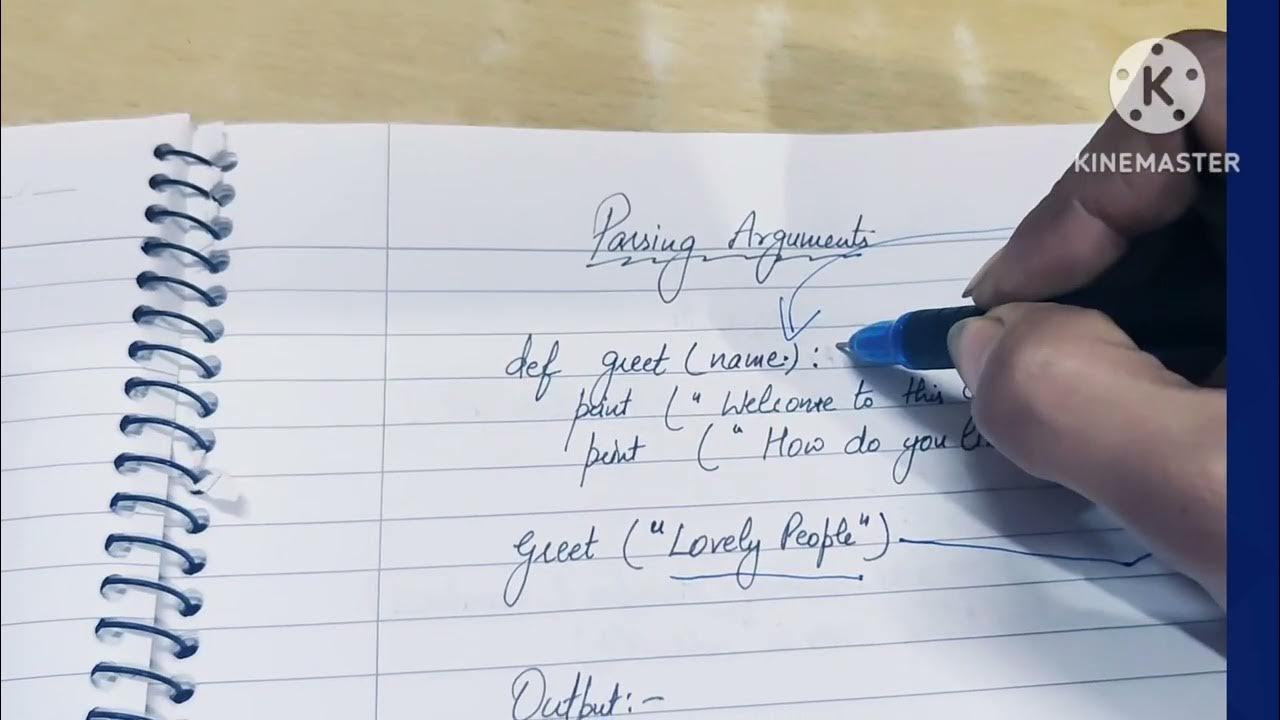 KINEMASTER
Parsing Arguments
def greet (name.) :
print (" Welcome to this
print (" How do you
greet ("Lovely People")
Output:-